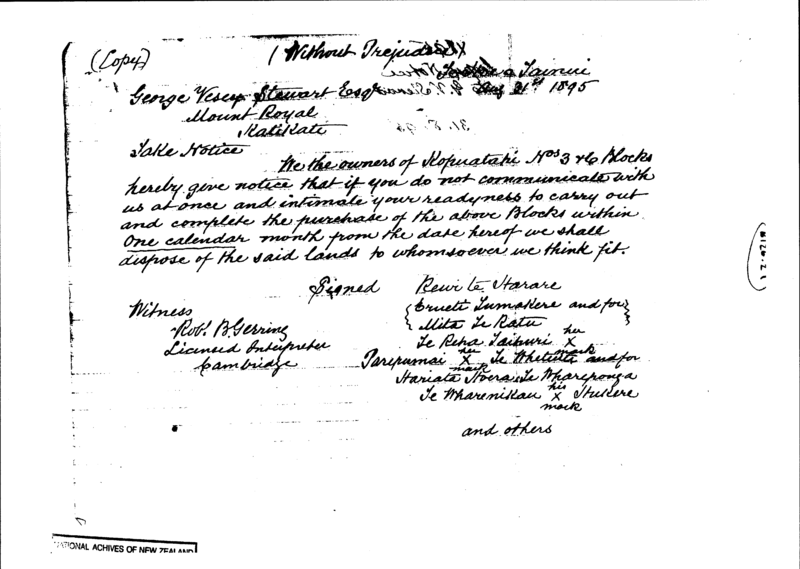 (Copy)
(Without Prejudice)
Tainui
George Vesey Stewart Esqr Aug 21st 1895
Mount Royal
Katikati
Take Notice
We the owners of Kopuatahi Nos 3 & 6 Blocks
hereby give notice that if you do not communicate with
us at once and intimate your readyness to carry out
and complete the purchase of the above Blocks within
One calendar month from the date hereof we shall
dispose of the said lands to whomsoever we think fit.
Signed Rewi te Harare
Witness
Robt B Gerring
Licensed Interpreter
Cambridge
Erueti Tumakere and for
Mita Te Ratu
Te Reha Taipuri her X mark
Parepumai her X mark Te Whetutta and for
Hariata Hoera Te Whareponga
Te Wharenikau his X mark Hukere
and others
NATIONAL ACHIVES OF NEW ZEALAND